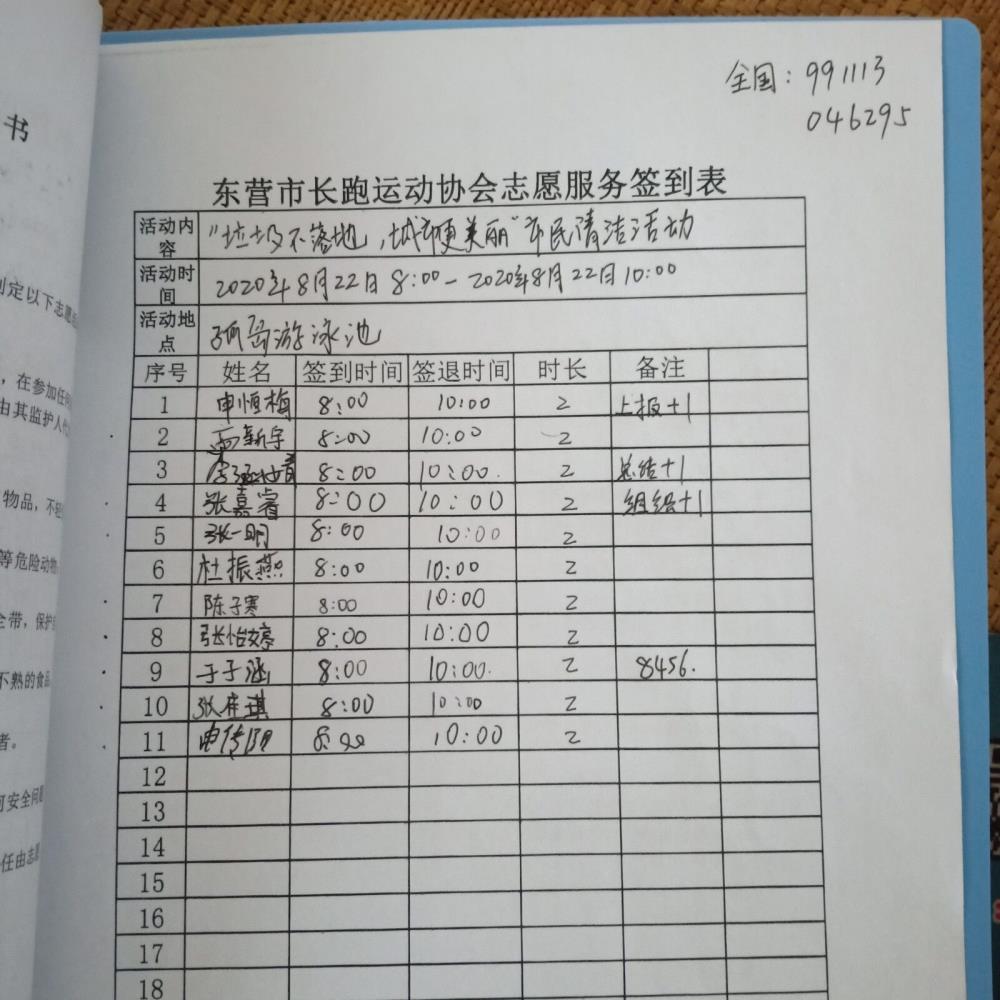 全国：991113
046295
书
东营市长跑运动协会志愿服务签到表
活动内容 "垃圾不落地，城市更美丽"市民清洁活动
活动时间 2020年8月22日 8:00-2020年8月22日10:00
活动地点 孤岛游泳池
序号 姓名 签到时间 签退时间 时长 备注
1 申恒梅 8:00 10:00 2 上报+1
2 新宇 8:00 10:00 2
3 8:00 10:00. 2 总结+1
4 张嘉睿 8:00 10:00 2 组织+1
5 张一明 8:00 10:00 2
6 杜振燕 8:00 10:00 2
7 陈子寒 8:00 10:00 2
8 张怡婷 8:00 10:00 2
9 于子涵 8:00 10:00. 2 8456.
10 张 琪 8:00 10:00 2
11 8:00 10:00 2
12
13
14
15
16
17
18
定以下志愿
，在参加任何
由其监护人代
物品，不
等危险动物
带，保护
不熟的食品
者。
可安全问题
任由志愿